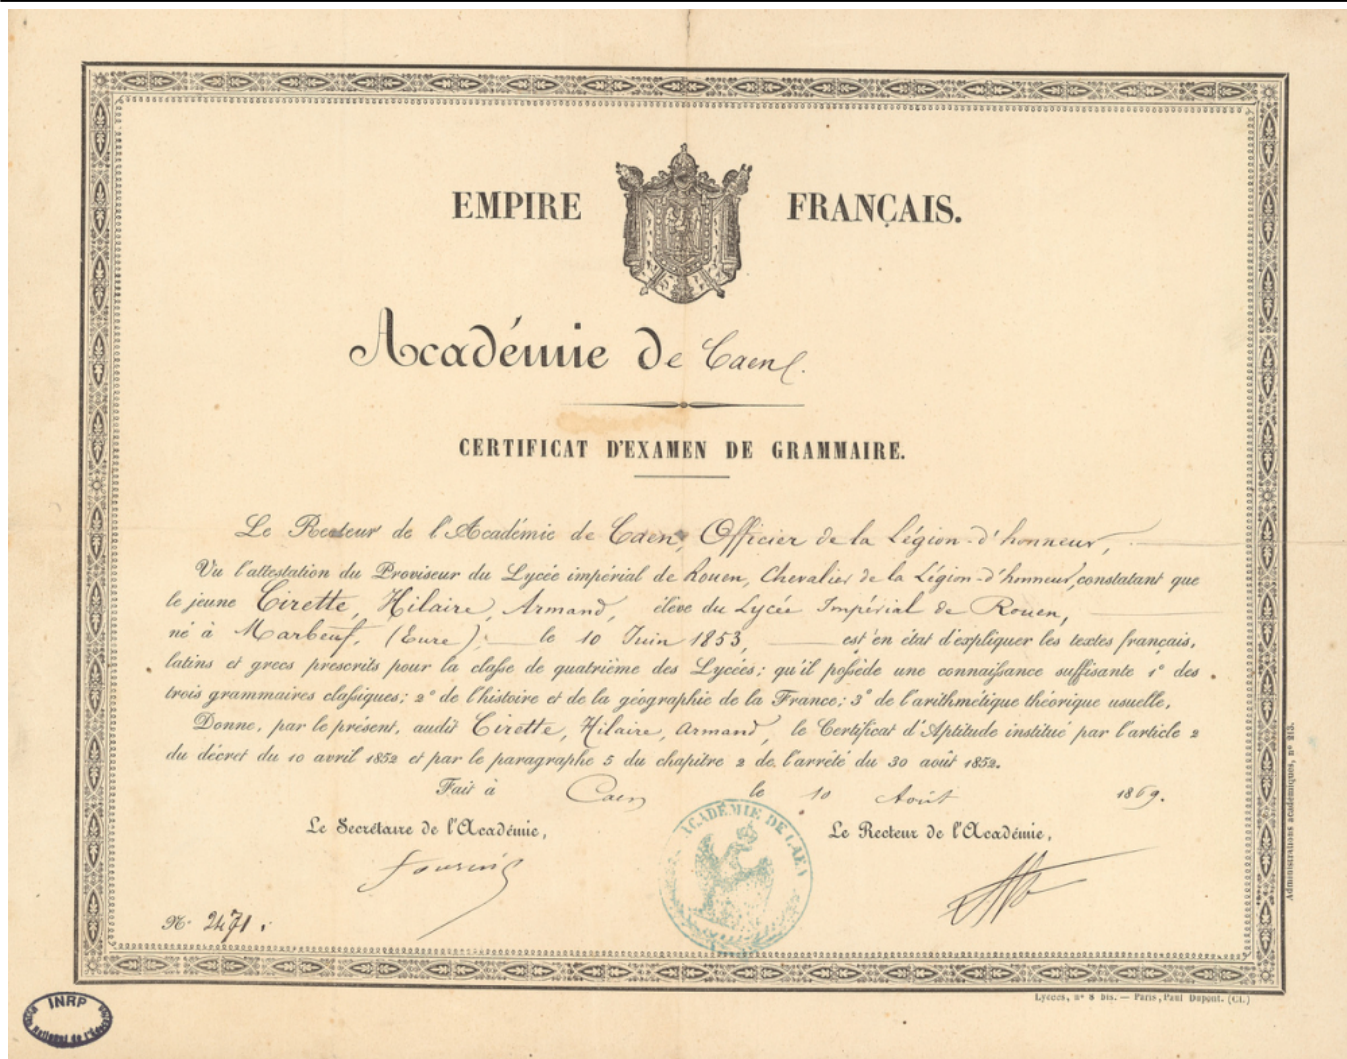 EMPIRE FRANÇAIS.
Académie de Caen.
CERTIFICAT D'EXAMEN DE GRAMMAIRE.
Le Recteur de l'Académie de Caen, Officier de la Légion-d'honneur,
Vu l'attestation du Proviseur du Lycée impérial de Rouen, Chevalier de la Légion-d'honneur, constatant que
le jeune Cirette, Hilaire, Armand, élève du Lycée Impérial de Rouen,
né à Marbeuf, (Eure), le 10 Juin 1853, est en état d'expliquer les textes français,
latins et grecs prescrits pour la classe de quatrième des Lycées; qu'il possède une connaissance suffisante 1º des
trois grammaires classiques; 2º de l'histoire et de la géographie de la France; 3º de l'arithmétique théorique usuelle,
Donne, par le présent, audit Cirette, Hilaire, Armand, le Certificat d'Aptitude institué par l'article 2
du décret du 10 avril 1852 et par le paragraphe 5 du chapitre 2 de l'arrêté du 30 août 1852.
Fait à Caen le 10 Août 1869.
Le Secrétaire de l'Académie, Le Recteur de l'Académie,
ACADÉMIE DE CAEN
Nº 2471.
Administrations académiques, nº 213.
Lycées, nº 8 bis. — Paris, Paul Dupont. (Cl.)
INRP
National de l'Éducation